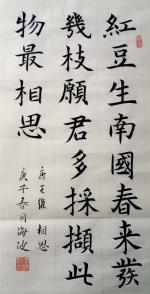 紅豆生南國春來發
幾枝願君多採擷此
物最相思
唐王維 相思
庚子春月海波